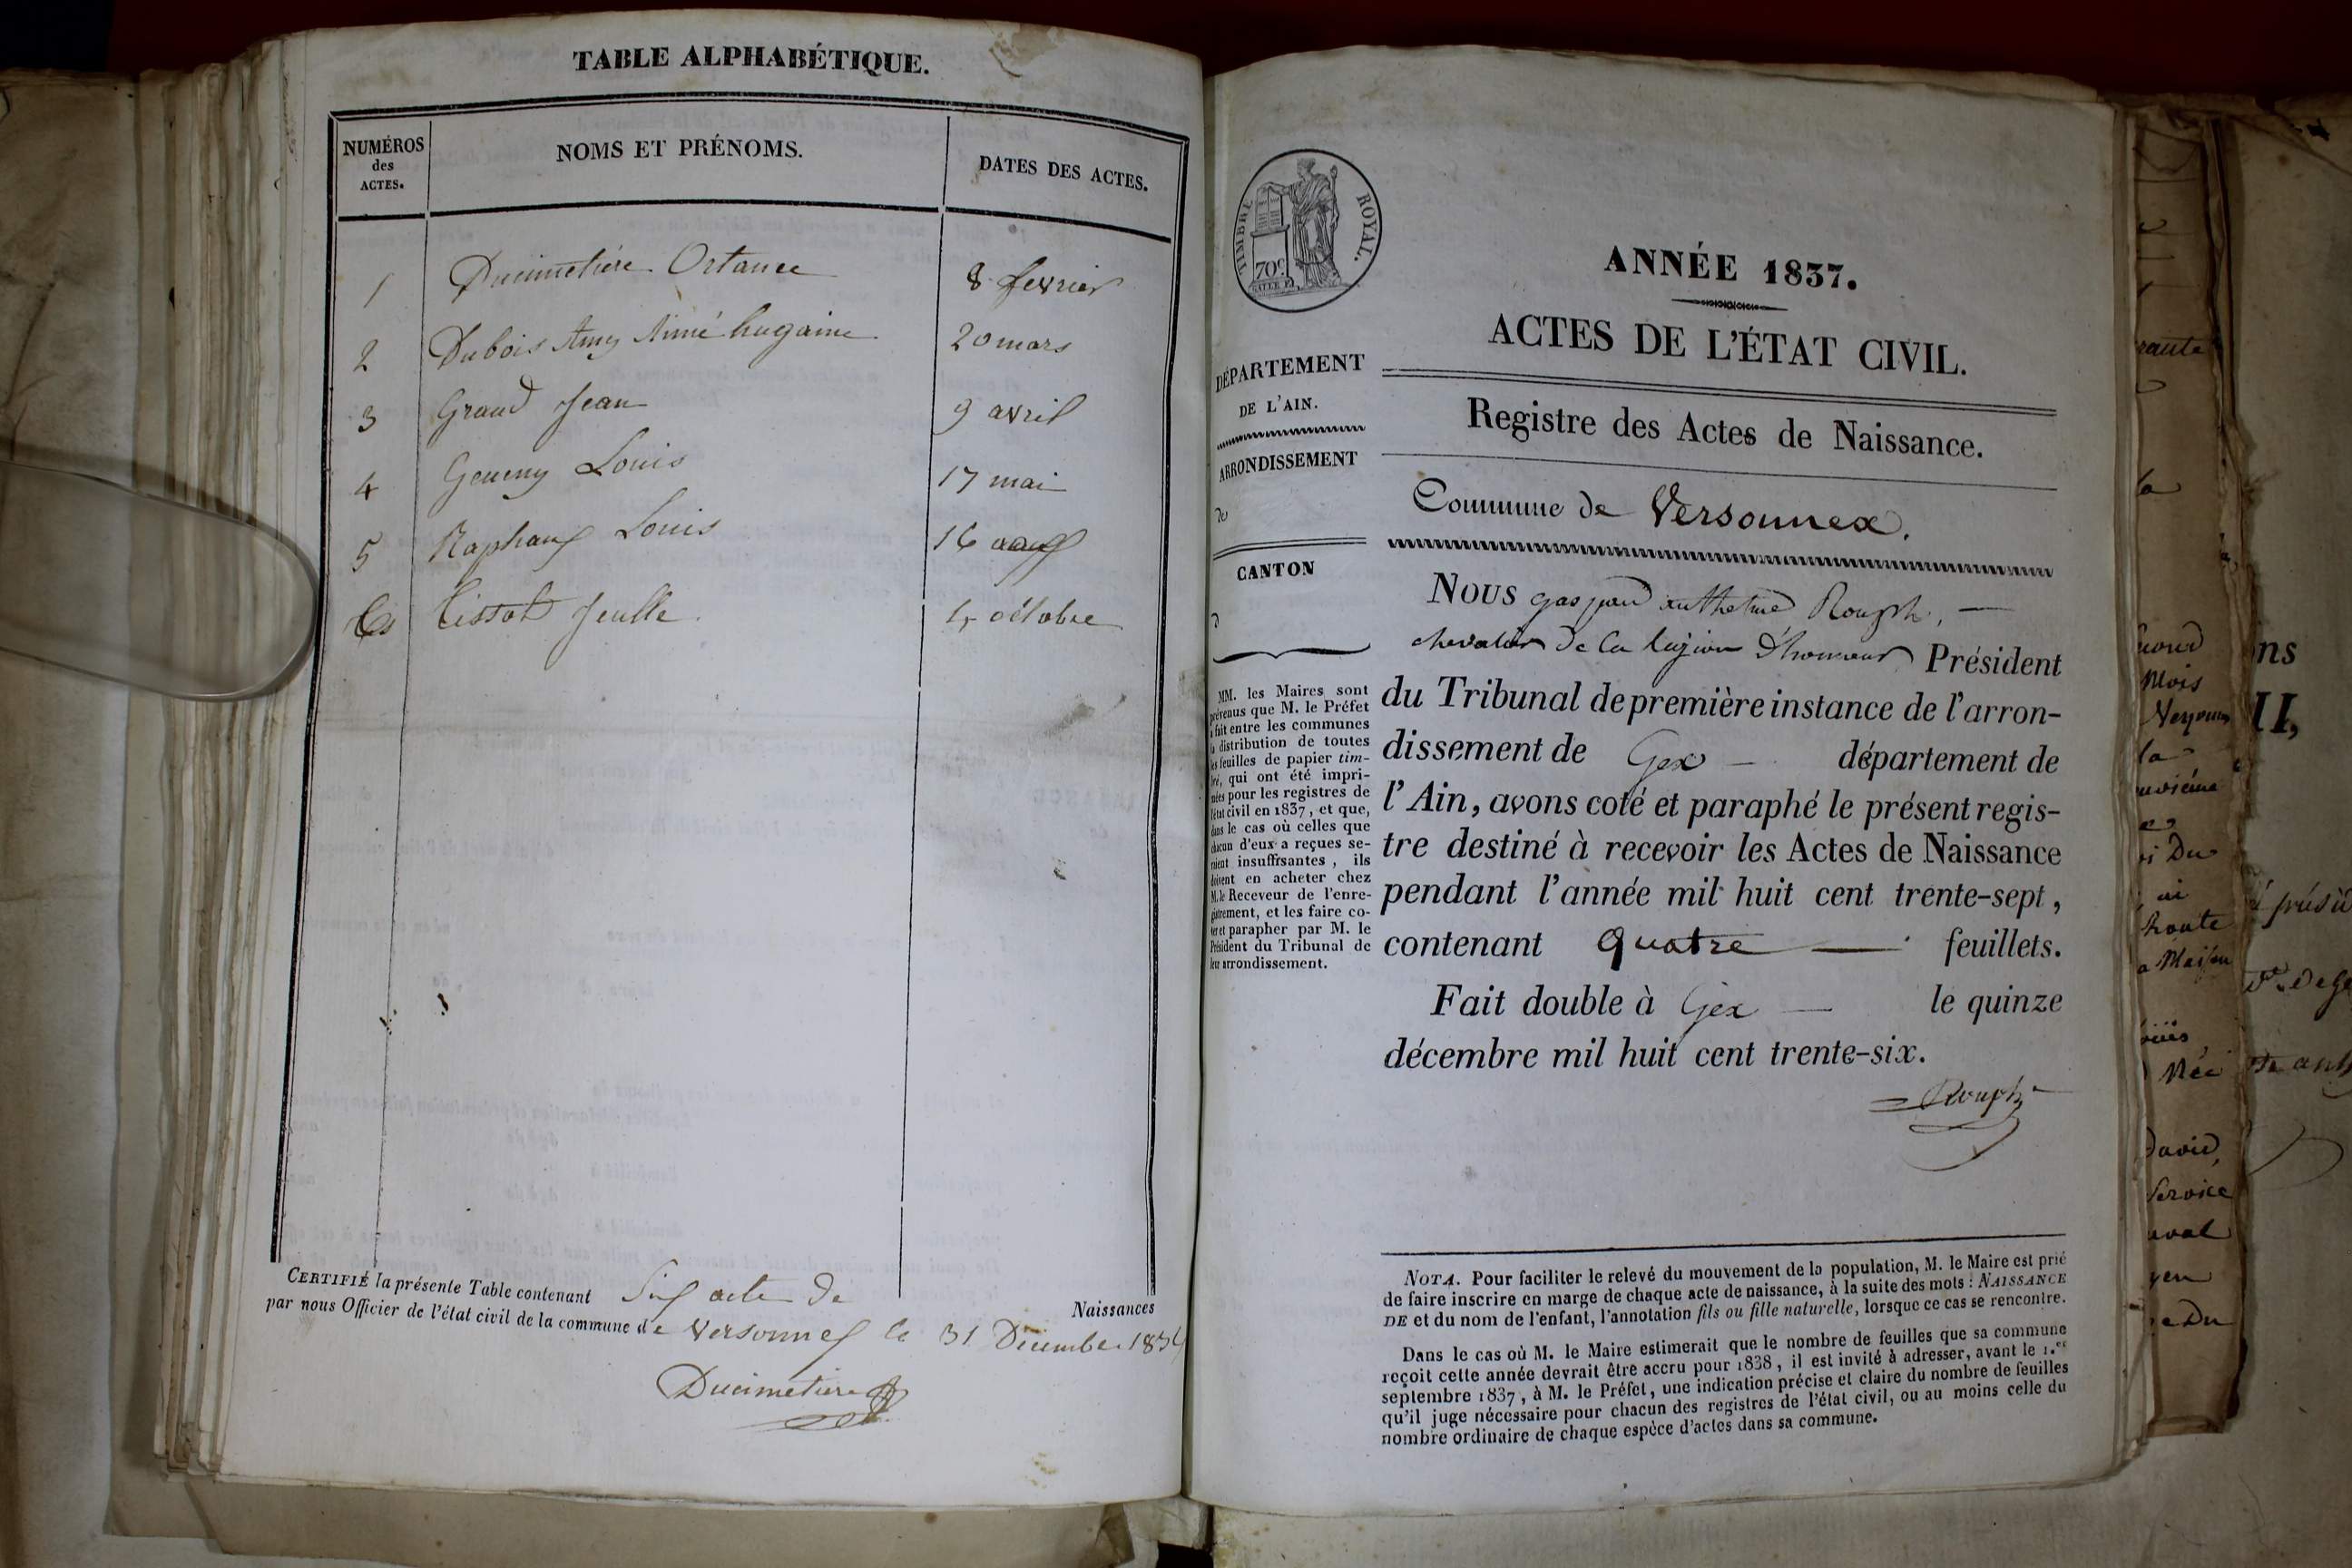 TABLE ALPHABÉTIQUE.
NUMÉROS
des
ACTES.
NOMS ET PRÉNOMS.
DATES DES ACTES.
1 Ducimetière Ortance 8 fevrier
2 Dubois Amy Aimé hugaine 20 mars
3 Grand Jean 9 avril
4 Louis 17 mai
5 Raphauf Louis 16
6 tissot 4 octobre
CERTIFIÉ la présente Table contenant Six acte de Naissances
par nous Officier de l'état civil de la commune de Versonnex le 31 Décembre
Ducimetière
TIMBRE ROYAL.
70c
ANNÉE 1837.
ACTES DE L'ÉTAT CIVIL.
DÉPARTEMENT
DE L'AIN.
ARRONDISSEMENT
de
CANTON
d
Registre des Actes de Naissance.
Commune de Versonnex.
NOUS gaspard anthelme Rouph,
chevalier de la légion d'honneur Président
du Tribunal de première instance de l'arron-
dissement de Gex département de
l'Ain, avons coté et paraphé le présent regis-
tre destiné à recevoir les Actes de Naissance
pendant l'année mil huit cent trente-sept,
contenant quatre feuillets.
Fait double à Gex le quinze
décembre mil huit cent trente-six.
Rouph
MM. les Maires sont
prévenus que M. le Préfet
a fait entre les communes
la distribution de toutes
les feuilles de papier tim-
bré, qui ont été impri-
mées pour les registres de
l'état civil en 1837, et que,
dans le cas où celles que
chacun d'eux a reçues se-
raient insuffisantes, ils
doivent en acheter chez
M. le Receveur de l'enre-
gistrement, et les faire co-
ter et parapher par M. le
Président du Tribunal de
leur arrondissement.
NOTA. Pour faciliter le relevé du mouvement de la population, M. le Maire est prié
de faire inscrire en marge de chaque acte de naissance, à la suite des mots : NAISSANCE
DE et du nom de l'enfant, l'annotation fils ou fille naturelle, lorsque ce cas se rencontre.
Dans le cas où M. le Maire estimerait que le nombre de feuilles que sa commune
reçoit cette année devrait être accru pour 1838, il est invité à adresser, avant le 1.er
septembre 1837, à M. le Préfet, une indication précise et claire du nombre de feuilles
qu'il juge nécessaire pour chacun des registres de l'état civil, ou au moins celle du
nombre ordinaire de chaque espèce d'actes dans sa commune.